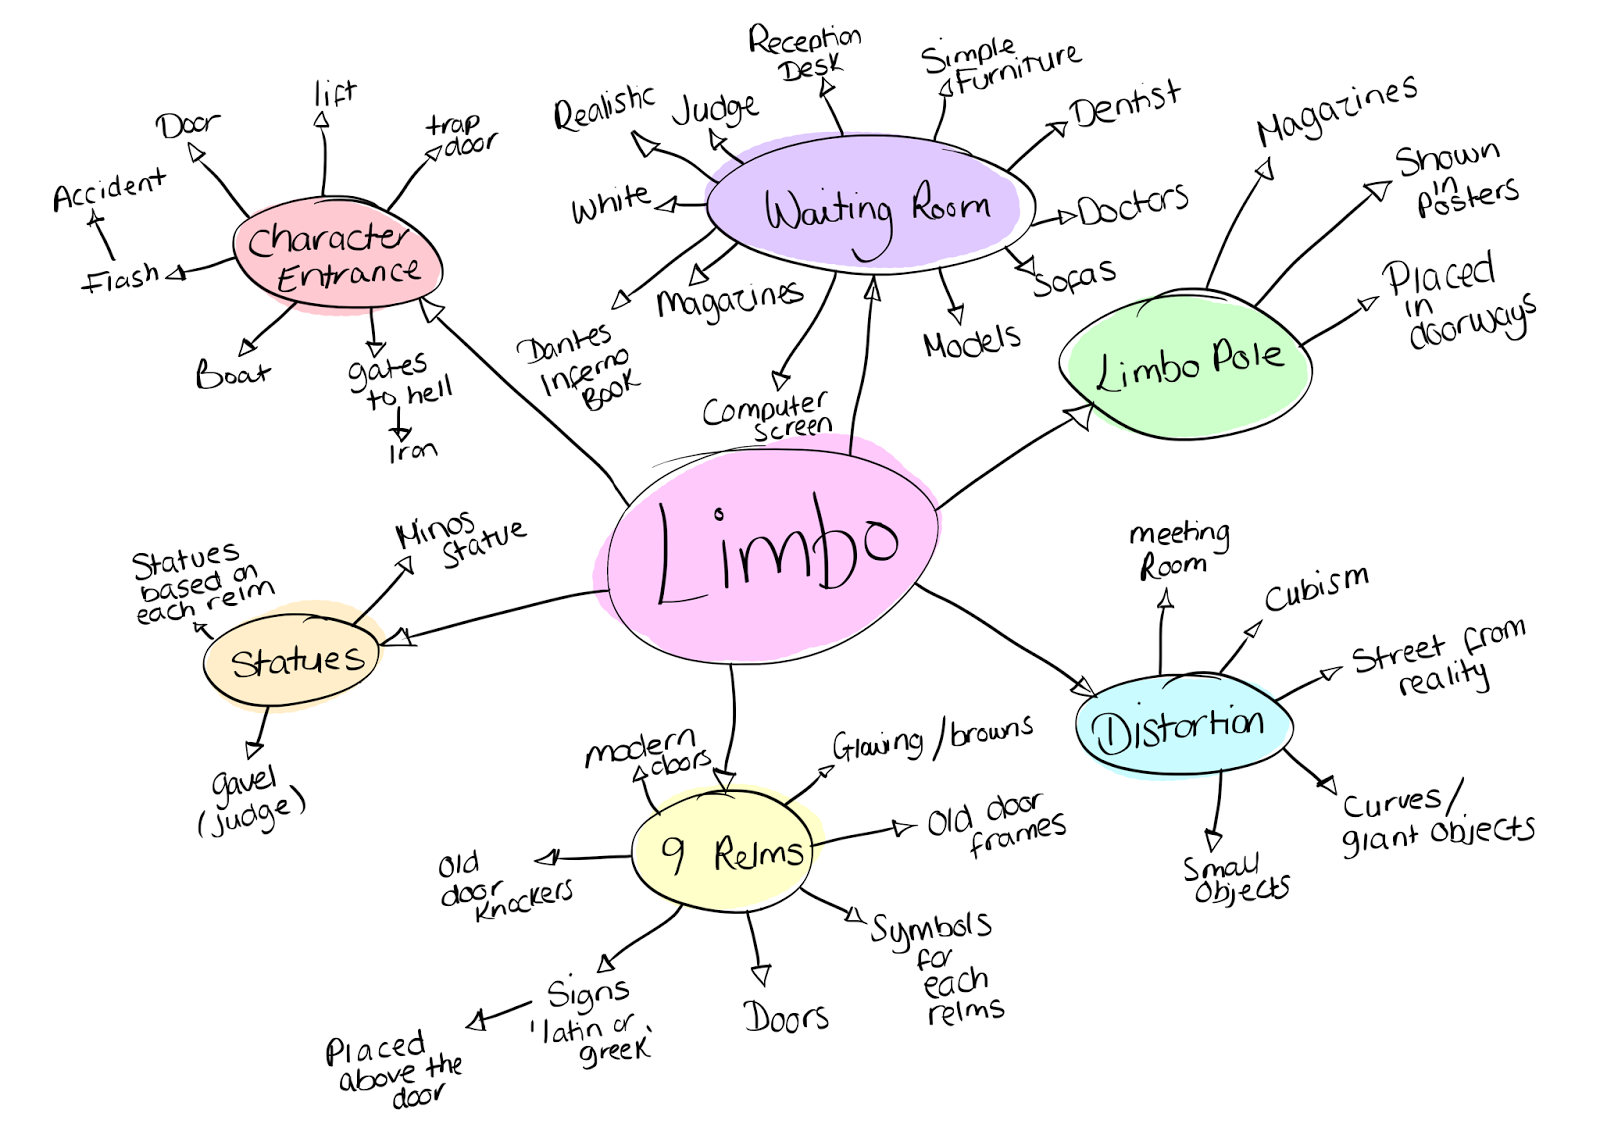 Reception
Desk
Simple
Furniture
lift
Realistic
Judge
Dentist
Magazines
Door
trap
door
Accident
White
Waiting Room
Doctors
Shown
in
Posters
Character
Entrance
Flash
Magazines
Sofas
Placed
in
doorways
Boat
gates
to hell
Iron
Dantes
Inferno
Book
Models
Limbo Pole
Computer
screen
Limbo
Minos
Statue
Statues
based on
each relm
meeting
Room
Cubism
Street from
reality
Statues
Distortion
gavel
(judge)
modern
doors
Glowing/browns
Curves/
giant objects
Old door
frames
9 Relms
Old
door
knockers
Small
Objects
Symbols
for
each
relms
Signs
'latin or
greek'
Doors
Placed
above the
door